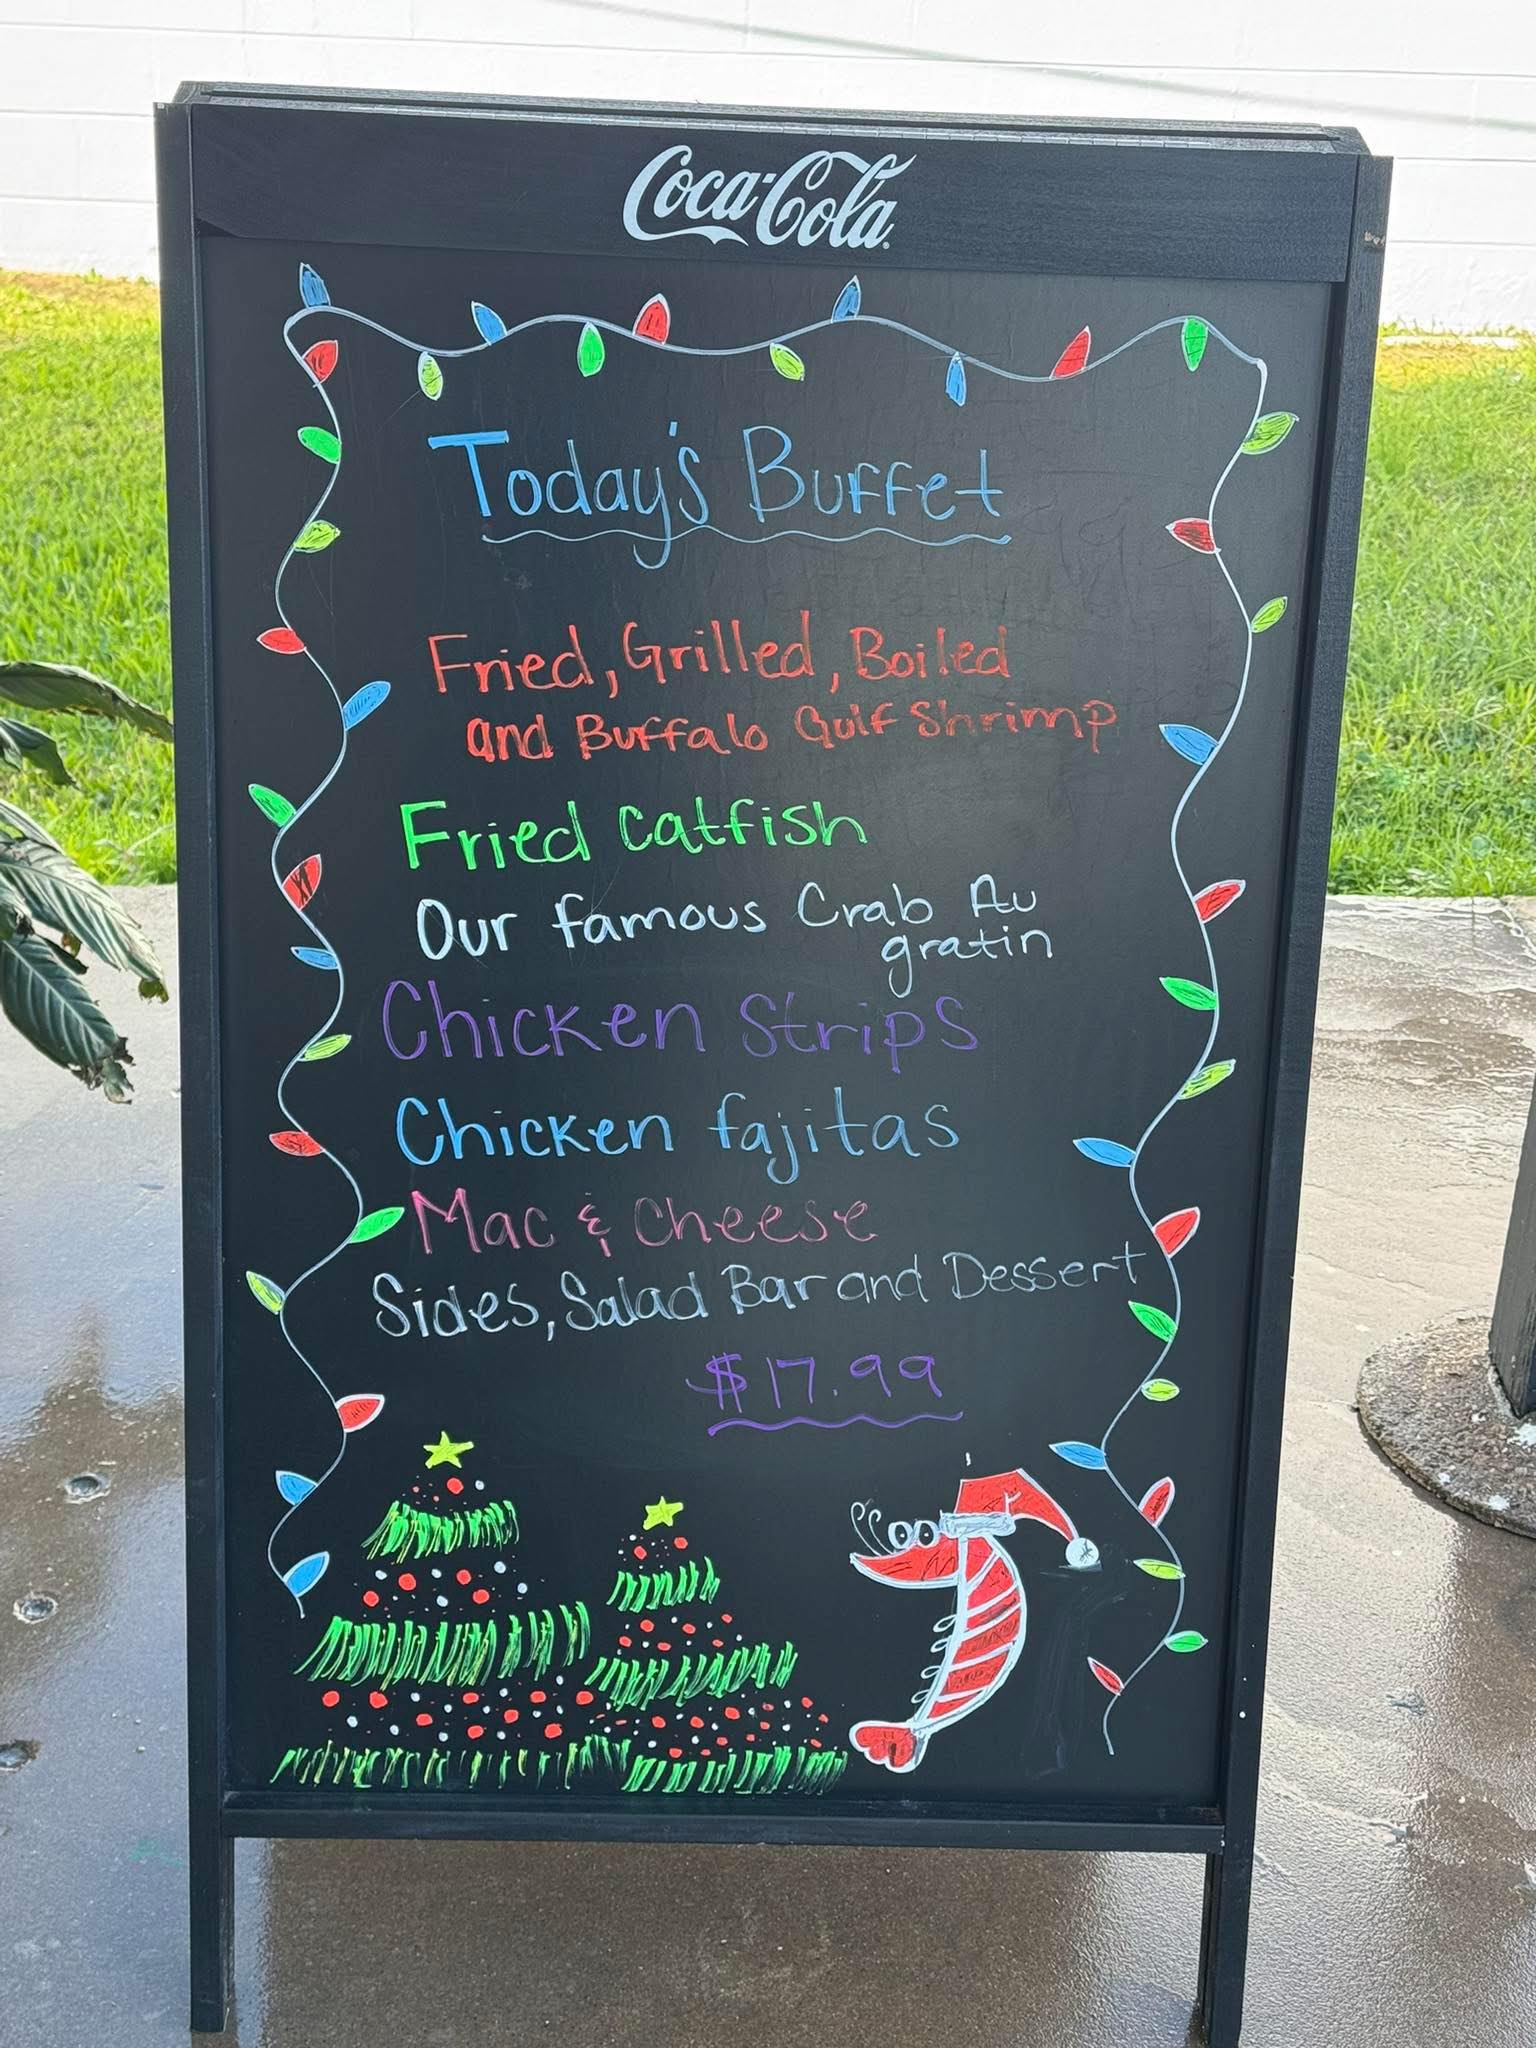 Coca-Cola
Today's Buffet
Fried, Grilled, Boiled
and Buffalo Gulf Shrimp
Fried Catfish
Our famous Crab Au
gratin
Chicken Strips
Chicken fajitas
Mac & Cheese
Sides, Salad Bar and Dessert
$17.99